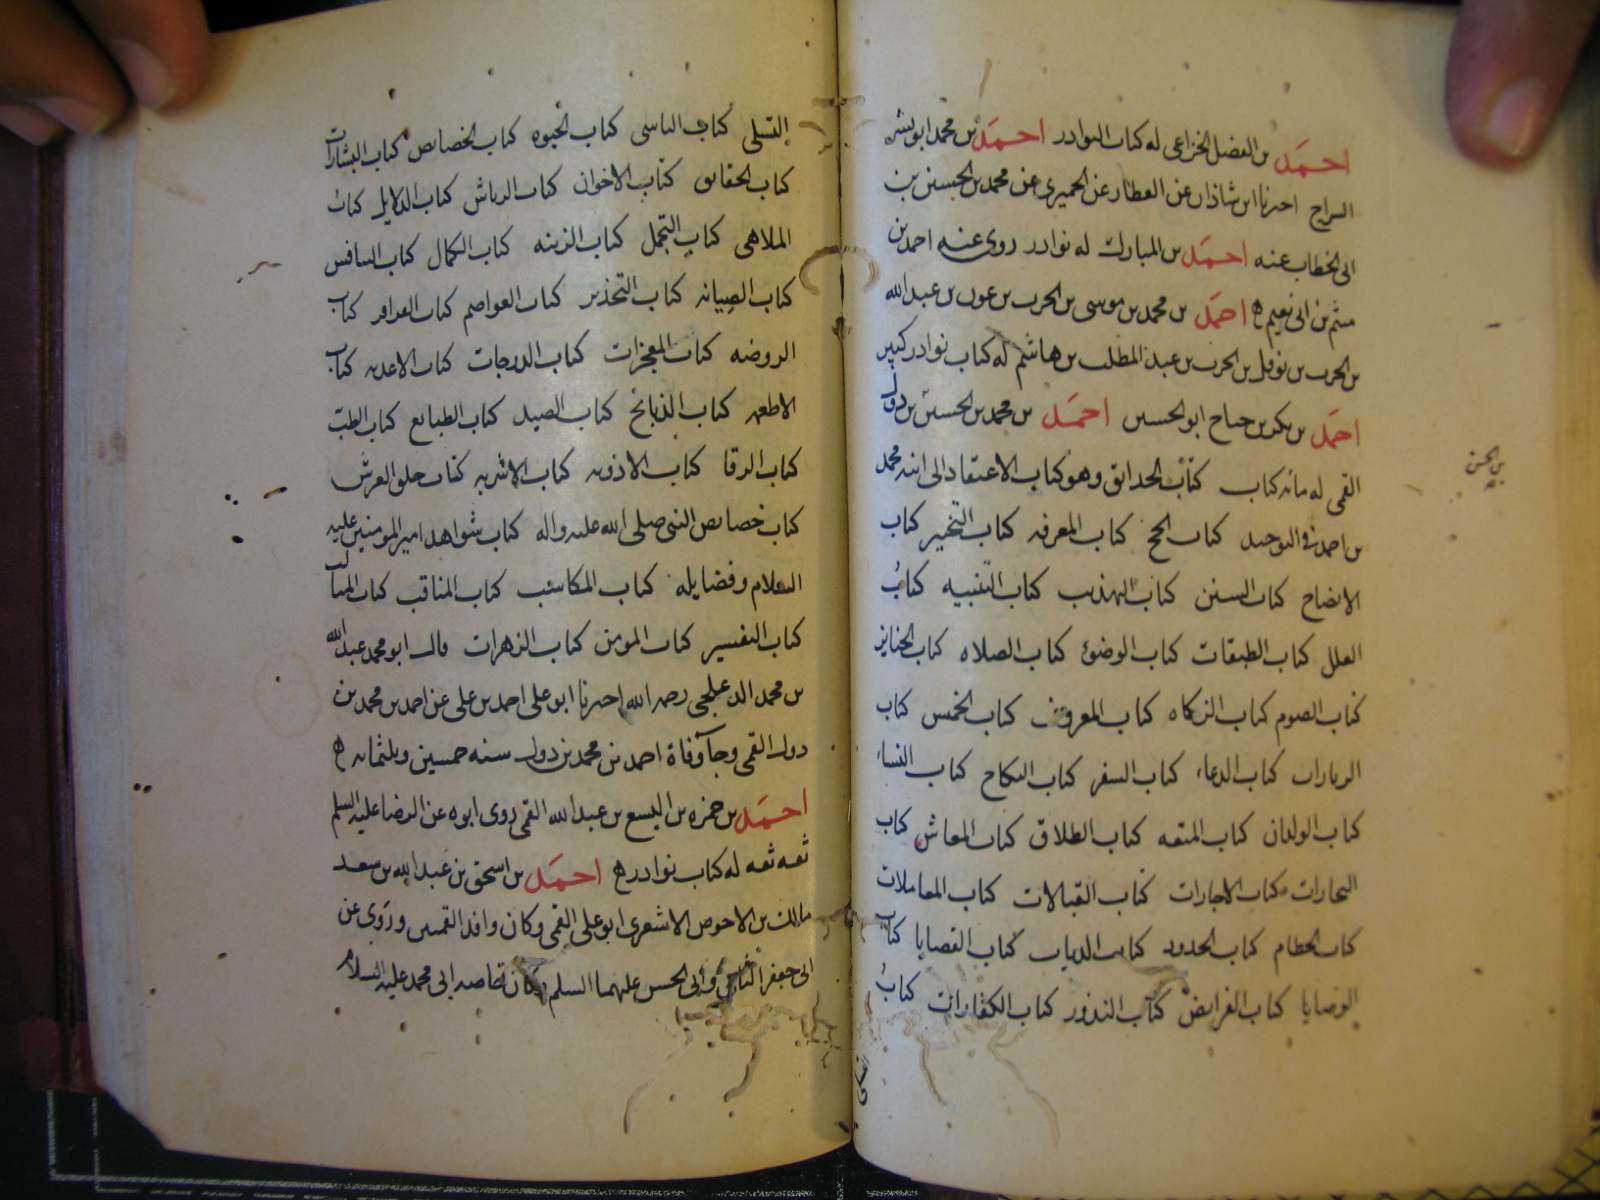 احمد بن الفضل الخزاعى له كتاب النوادر احمد بن محمد ابو بشر
السراج اخبرنا ابن شاذان عن العطار عن الحميرى عن محمد بن الحسين بن
ابى الخطاب عنه احمد بن المبارك له نوادر روى عنه احمد بن
ميثم بن ابى نعيم ه احمد بن محمد بن موسى بن الحرث بن عون بن عبد الله
بن الحرث بن نوفل بن الحرث بن عبد المطلب بن هاشم له كتاب نوادر كبير
احمد بن بكر بن جناح ابو الحسين احمد بن محمد بن الحسين بن دول
القمى له مائه كتاب كتاب الحدائق وهو كتاب الاعتقاد الى ابنه محمد
بن الحسن
بن احمد فى التوحيد كتاب الحج كتاب المعرفه كتاب التخيير كتاب
الايضاح كتاب السنن كتاب التهذيب كتاب التنبيه كتاب
العلل كتاب الطبقات كتاب الوضوء كتاب الصلاه كتاب الجنايز
كتاب الصوم كتاب الزكاه كتاب المعروف كتاب الخمس كتاب
الزيارات كتاب الدعاء كتاب السفر كتاب النكاح كتاب النساء
كتاب الولدان كتاب المتعه كتاب الطلاق كتاب المعاش كتاب
التجارات كتاب الاجارات كتاب القبالات كتاب المعاملات
كتاب الحطام كتاب الحدود كتاب الديات كتاب القضايا كتاب
الوصايا كتاب الفرايض كتاب النذور كتاب الكفارات كتاب
تسلى
التسلى كتاب التاسى كتاب الحيوه كتاب الخصايص كتاب البشارات
كتاب الحقايق كتاب الاخوان كتاب الرياش كتاب الدلايل كتاب
الملاهى كتاب التجمل كتاب الزينه كتاب الكمال كتاب التنافس
كتاب الصيانه كتاب التحذير كتاب العواصم كتاب العراقر كتاب
الروضه كتاب المعجزات كتاب الدرجات كتاب الاغذيه كتاب
الاطعمه كتاب الذبائح كتاب الصيد كتاب الطبائع كتاب الطب
كتاب الرقا كتاب الادويه كتاب الاشربه كتاب خلق العرش
كتاب خصايص النبى صلى الله عليه واله كتاب شواهد امير المومنين عليه
السلام وفضايله كتاب المكاسب كتاب المناقب كتاب المثالب
كتاب التفسير كتاب المومن كتاب الزهرات قال ابو محمد عبد الله
بن محمد الدعلجى رحمه الله اخبرنا ابو على احمد بن على عن احمد بن محمد بن
دول القمى وجاء وفاة احمد بن محمد بن دول سنه خمسين وثلثمائه ه
احمد بن حمزه بن اليسع بن عبد الله القمى روى ابوه عن الرضا عليه السلم
ثقه ثقه له كتاب نوادر ه احمد بن اسحق بن عبد الله بن سعد
مالك بن الاحوص الاشعرى ابو على القمى وكان وافد القميين وروى عن
ابى جعفر الثانى وابى الحسن عليهما السلم وكان خاصه ابى محمد عليه السلام